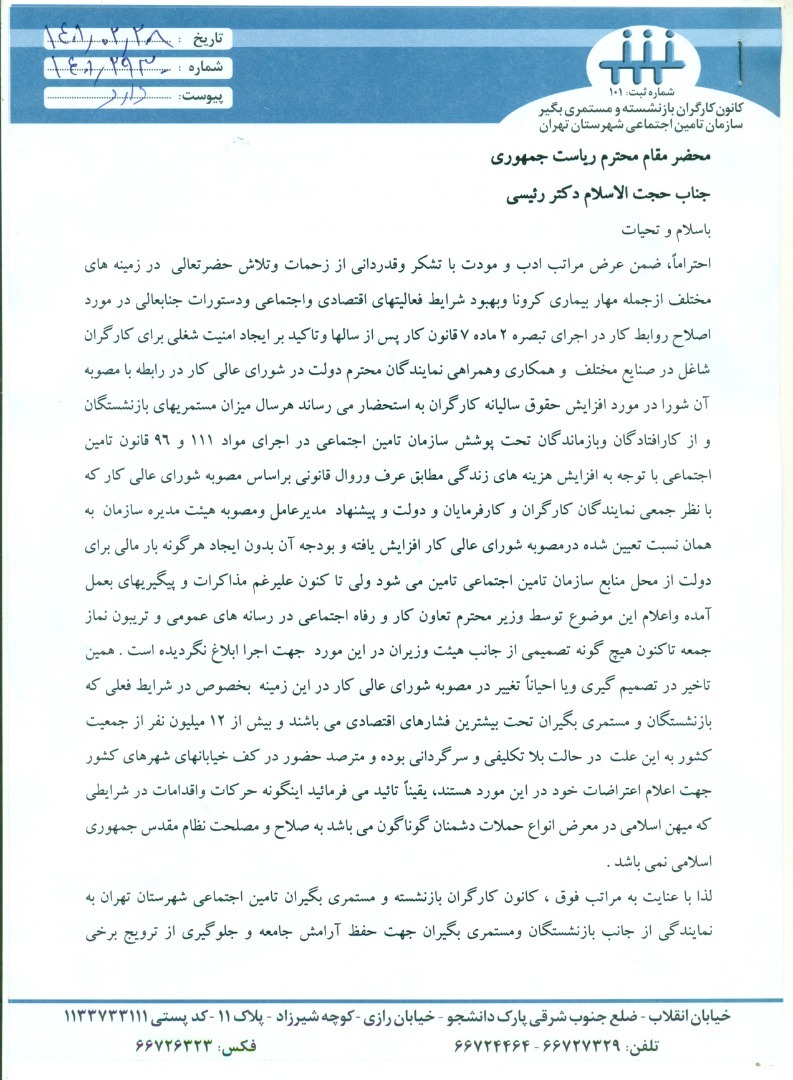 تاریخ : ۱۴۰۱/۰۲/۲۸
شماره :
پیوست: دارد
شماره ثبت: ۱۰۱
کانون کارگران بازنشسته و مستمری بگیر
سازمان تامین اجتماعی شهرستان تهران
محضر مقام محترم ریاست جمهوری
جناب حجت الاسلام دکتر رئیسی
باسلام و تحیات
احتراماً، ضمن عرض مراتب ادب و مودت با تشکر وقدردانی از زحمات وتلاش حضرتعالی در زمینه های
مختلف ازجمله مهار بیماری کرونا وبهبود شرایط فعالیتهای اقتصادی واجتماعی ودستورات جنابعالی در مورد
اصلاح روابط کار در اجرای تبصره ۲ ماده ۷ قانون کار پس از سالها وتاکید بر ایجاد امنیت شغلی برای کارگران
شاغل در صنایع مختلف و همکاری وهمراهی نمایندگان محترم دولت در شورای عالی کار در رابطه با مصوبه
آن شورا در مورد افزایش حقوق سالیانه کارگران به استحضار می رساند هرسال میزان مستمریهای بازنشستگان
و از کارافتادگان وبازماندگان تحت پوشش سازمان تامین اجتماعی در اجرای مواد ۱۱۱ و ۹۶ قانون تامین
اجتماعی با توجه به افزایش هزینه های زندگی مطابق عرف وروال قانونی براساس مصوبه شورای عالی کار که
با نظر جمعی نمایندگان کارگران و کارفرمایان و دولت و پیشنهاد مدیرعامل ومصوبه هیئت مدیره سازمان به
همان نسبت تعیین شده درمصوبه شورای عالی کار افزایش یافته و بودجه آن بدون ایجاد هرگونه بار مالی برای
دولت از محل منابع سازمان تامین اجتماعی تامین می شود ولی تا کنون علیرغم مذاکرات و پیگیریهای بعمل
آمده واعلام این موضوع توسط وزیر محترم تعاون کار و رفاه اجتماعی در رسانه های عمومی و تریبون نماز
جمعه تاکنون هیچ گونه تصمیمی از جانب هیئت وزیران در این مورد جهت اجرا ابلاغ نگردیده است . همین
تاخیر در تصمیم گیری ویا احیاناً تغییر در مصوبه شورای عالی کار در این زمینه بخصوص در شرایط فعلی که
بازنشستگان و مستمری بگیران تحت بیشترین فشارهای اقتصادی می باشند و بیش از ۱۲ میلیون نفر از جمعیت
کشور به این علت در حالت بلا تکلیفی و سرگردانی بوده و مترصد حضور در کف خیابانهای شهرهای کشور
جهت اعلام اعتراضات خود در این مورد هستند، یقیناً تائید می فرمائید اینگونه حرکات واقدامات در شرایطی
که میهن اسلامی در معرض انواع حملات دشمنان گوناگون می باشد به صلاح و مصلحت نظام مقدس جمهوری
اسلامی نمی باشد .
لذا با عنایت به مراتب فوق ، کانون کارگران بازنشسته و مستمری بگیران تامین اجتماعی شهرستان تهران به
نمایندگی از جانب بازنشستگان ومستمری بگیران جهت حفظ آرامش جامعه و جلوگیری از ترویج برخی
خیابان انقلاب - ضلع جنوب شرقی پارک دانشجو - خیابان رازی - کوچه شیرزاد - پلاک ۱۱ - کد پستی ۱۱۳۳۷۳۳۱۱۱
تلفن: ۶۶۷۲۷۳۲۹ - ۶۶۷۲۴۴۶۴ فکس: ۶۶۷۲۶۳۲۳